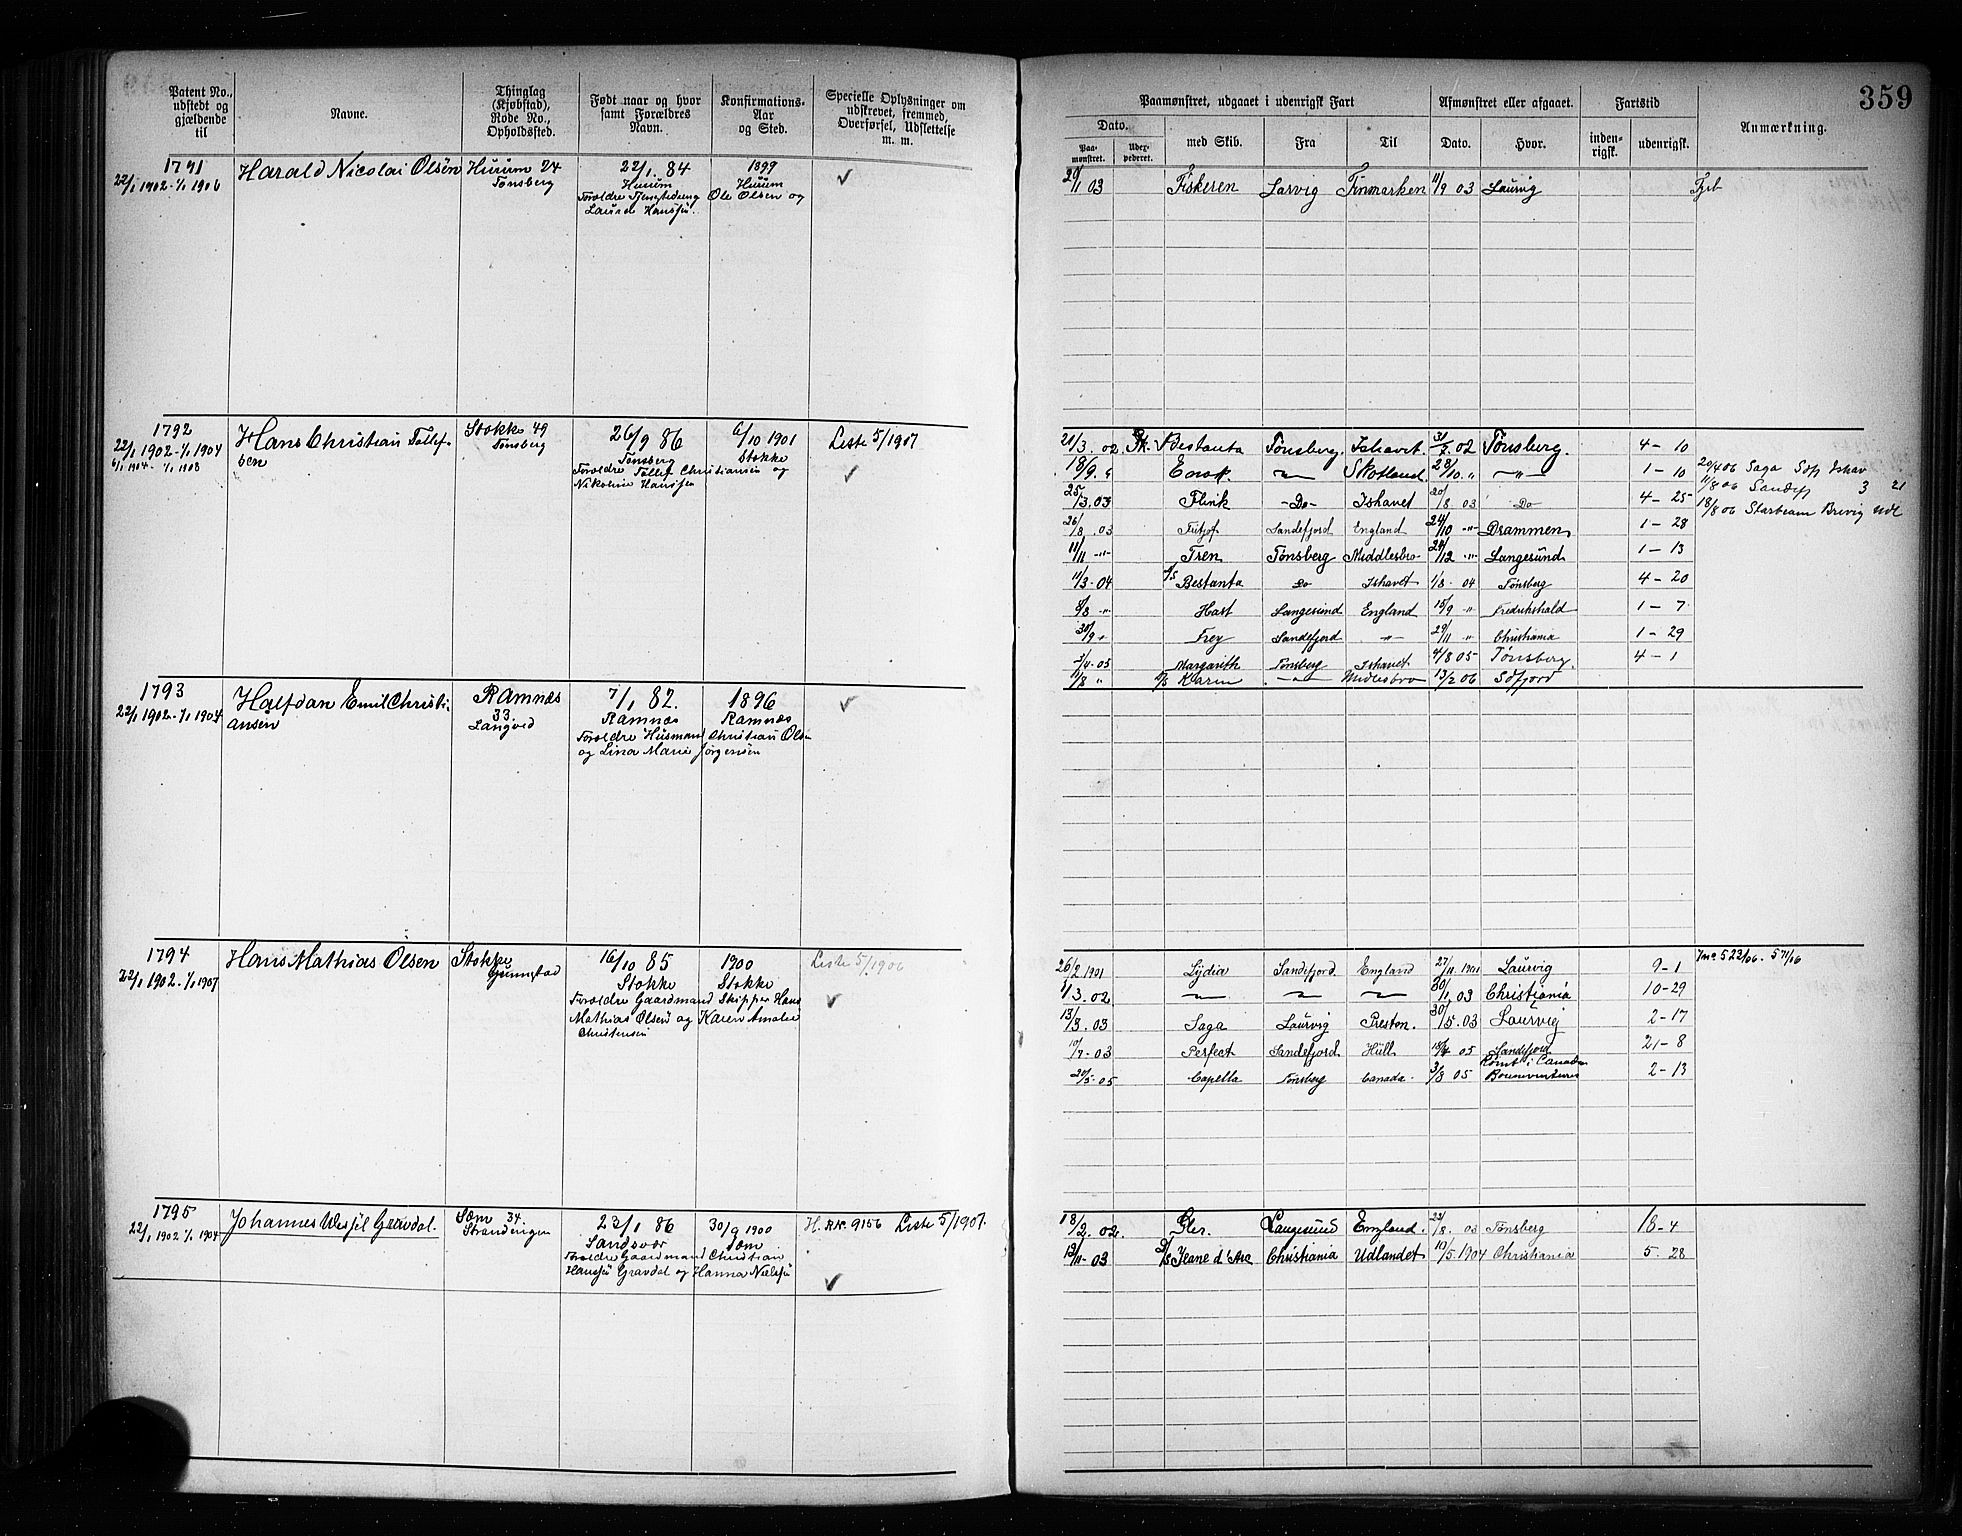 359
Patent No., udstedt og gjældende til
Navne.
Thinglag (Kjøbstad), Rode No., Opholdssted.
Født naar og hvor samt Forældres Navn.
Konfirmations-Aar og Sted.
Specielle Oplysninger om udskrevet, fremmed, Overførsel, Udslettelse m. m.
Paamønstret, udgaaet i udenrigsk Fart
Afmønstret eller afgaaet.
Fartstid
Anmærkning.
Dato.
Paa-mønstret.
Udex-pederet.
med Skib.
Fra
Til
Dato.
Hvor.
inden-rigsk.
udenrigsk.
1791
22/1 1902 - 1/1 1906
Harald Nicolai Olsen
Hurum 24
Tønsberg
22/1. 84
Hurum
1899
Hurum
Ole Olsen og
Laura Hansen.
29/1 03 Fiskeren Larvig Finmarken 11/9 03 Laurvig
1792
22/1 1902 - 1/1 1904
6/1 1904 - 1/1 1908
Hans Christian Tollef-
sen
Stokke 49
Tønsberg
26/9 86
Tønsberg
Forældre Tollef Christiansen og
Nikoline Hansen
6/10 1901
Stokke
Liste 5/1907
21/3. 02 Sk. Bestanta Tønsberg. Ishavet. 31/7 02 Tønsberg. 4 - 10
18/9. " Enok. -"- Skotland 28/10. " -"- 1 - 10
25/3. 03 Flink -Do- Ishavet 20/8 03 Do 4 - 25
26/8. 03 Fritjof Sandefjord England 24/10 -"- Drammen 1 - 28
11/11 -"- Fren Tønsberg Middlesbro 24/12 -"- Langesund 1 - 13
11/3 - 04 S/S Bestanta Do Ishavet 1/8 - 04 Tønsberg 4 - 20
8/8 -"- Hast Langesund England 15/9 -"- Fredrikshald 1 - 7
30/9 " Frey Sandefjord -"- 29/11 " Christiania 1 - 29
3/4 - 05 Margarith Tønsberg Ishavet 4/8 05 Tønsberg 4 - 1
11/8 " S/S Karin -"- Midlesbro 13/2 06 Sdfjord
20/4 06 Saga Sdfj Ishav
11/8 06 Sandefj 3 21
18/8 06 Starbeam Brevig Udl
1793
22/1 1902 - 1/1 1904
Halfdan Emil Christi-
ansen
Ramnæs
33
Langved
7/1 82.
Ramnæs
1896
Ramnæs
Forældre Husmand Christian Olsen
og Lina Marie Jørgensen
1794
22/1 1902 - 1/1 1907
Hans Mathias Olsen
Stokke
Gunnestad
16/10 85
Stokke
1900
Stokke
Forældre Gaardmand Skipper Hans
Mathias Olsen og Karen Amalie
Christensen
Liste 5/1906
26/2 1901 Lydia Sandefjord. England 27/11. 1901 Laurvig 9 - 1
1/3. 02 -"- -"- -"- 30/1. 03 Christiania 10 - 29
13/3. 03 Saga Laurvig Preston. 30/5. 03 Laurvig 2 - 17
10/7 - 03 Perfect Sandefjord Hull 18/4 05 Sandefjord 21 - 8
Rømt i Canada
20/5 - 05 Capella Tønsberg Canada. 3/8 05 Bonneventure 2 - 13
1795
22/1 1902 1/1 1904
Johannes Wessel Gravdal.
Sæm 34
Strandingen
23/1 86
Sandsvær
30/9 1900
Sæm
Forældre Gaardmand Christian
Hansen Gravdal og Hanna Nielsen
H. RK. 9156 Liste 5/1907.
18/2. 02. Gler. Langesund England. 23/8. 03 Tønsberg 18 - 4
12/11 - 03 S/S Jeane d'Arc Christiania Udlandet 10/5 1904 Christiania 5 - 28